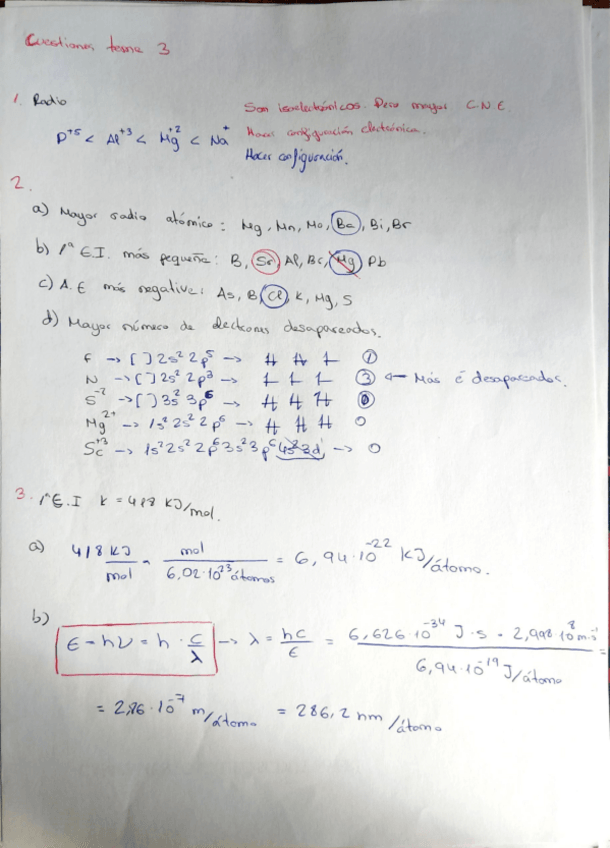 Cuestiones tema 3
1. Radio
Son isoelectrónicos. Pero mayor C.N.E.
P+5 < Al+3 < Mg+2 < Na+
Hacer configuración electrónica.
Hacer configuración.
2.
a) Mayor radio atómico: Mg, Mn, Mo, Ba, Bi, Br
b) 1ª E.I. más pequeña: B, Sr, Al, Br, Mg, Pb
c) A.E más negativa: As, B, Cl, K, Mg, S
d) Mayor número de electrones desapareados.
F → [ ] 2s² 2p⁵ → 1
N → [ ] 2s² 2p³ → 3 ← Más é desapareados.
S⁻² → [ ] 3s² 3p⁶ 0
Mg²⁺ → 1s² 2s² 2p⁶ → 0
Sc⁺³ → 1s² 2s² 2p⁶ 3s² 3p⁶ 4s² 3d¹ → 0
3. 1ª E.I K = 418 KJ/mol.
a) 418 KJ/mol · mol/6,02·10²³ átomos = 6,94·10⁻²² KJ/átomo.
b) E = hν = h · c/λ → λ = hc/E = 6,626·10⁻³⁴ J·s · 2,998·10⁸ m·s⁻¹ / 6,94·10⁻¹⁹ J/átomo =
= 2,86·10⁻⁷ m/átomo = 286,2 nm/átomo